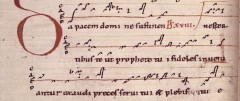 Da pacem domine sustinen
tibus te ut prophete tui fideles inveni
antur exaudi preces servi tui et plebis tue